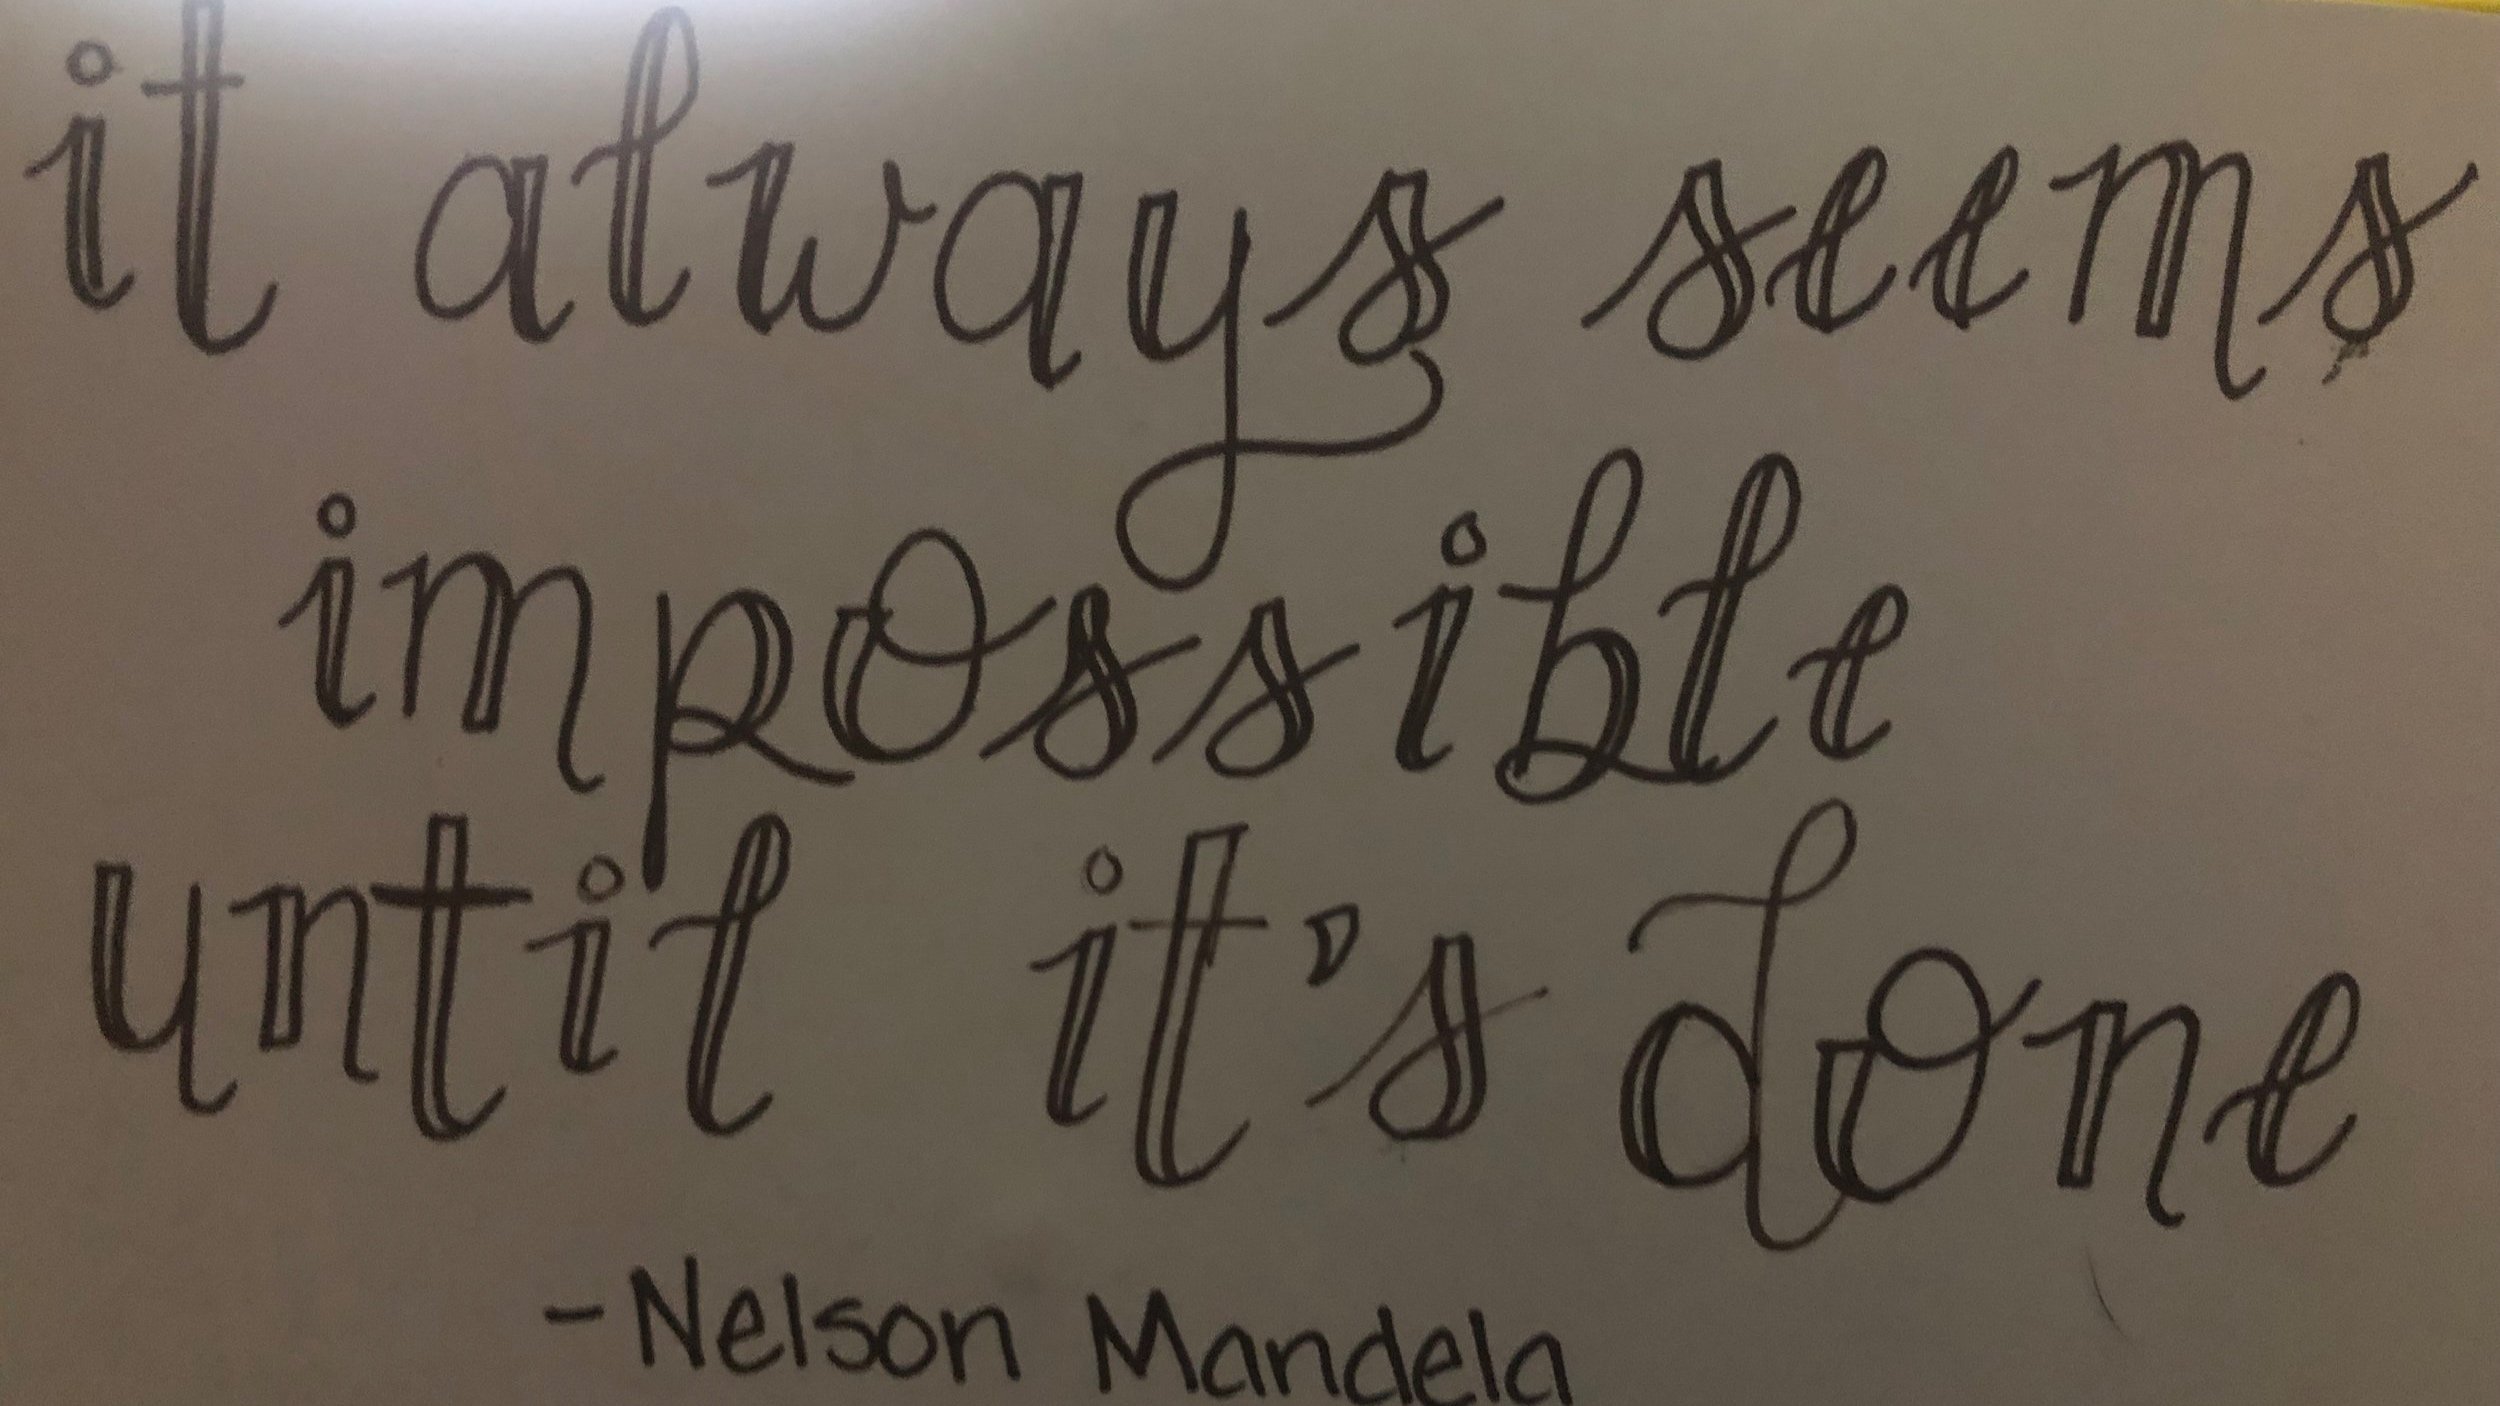 it always seems
impossible
until it's done
-Nelson Mandela